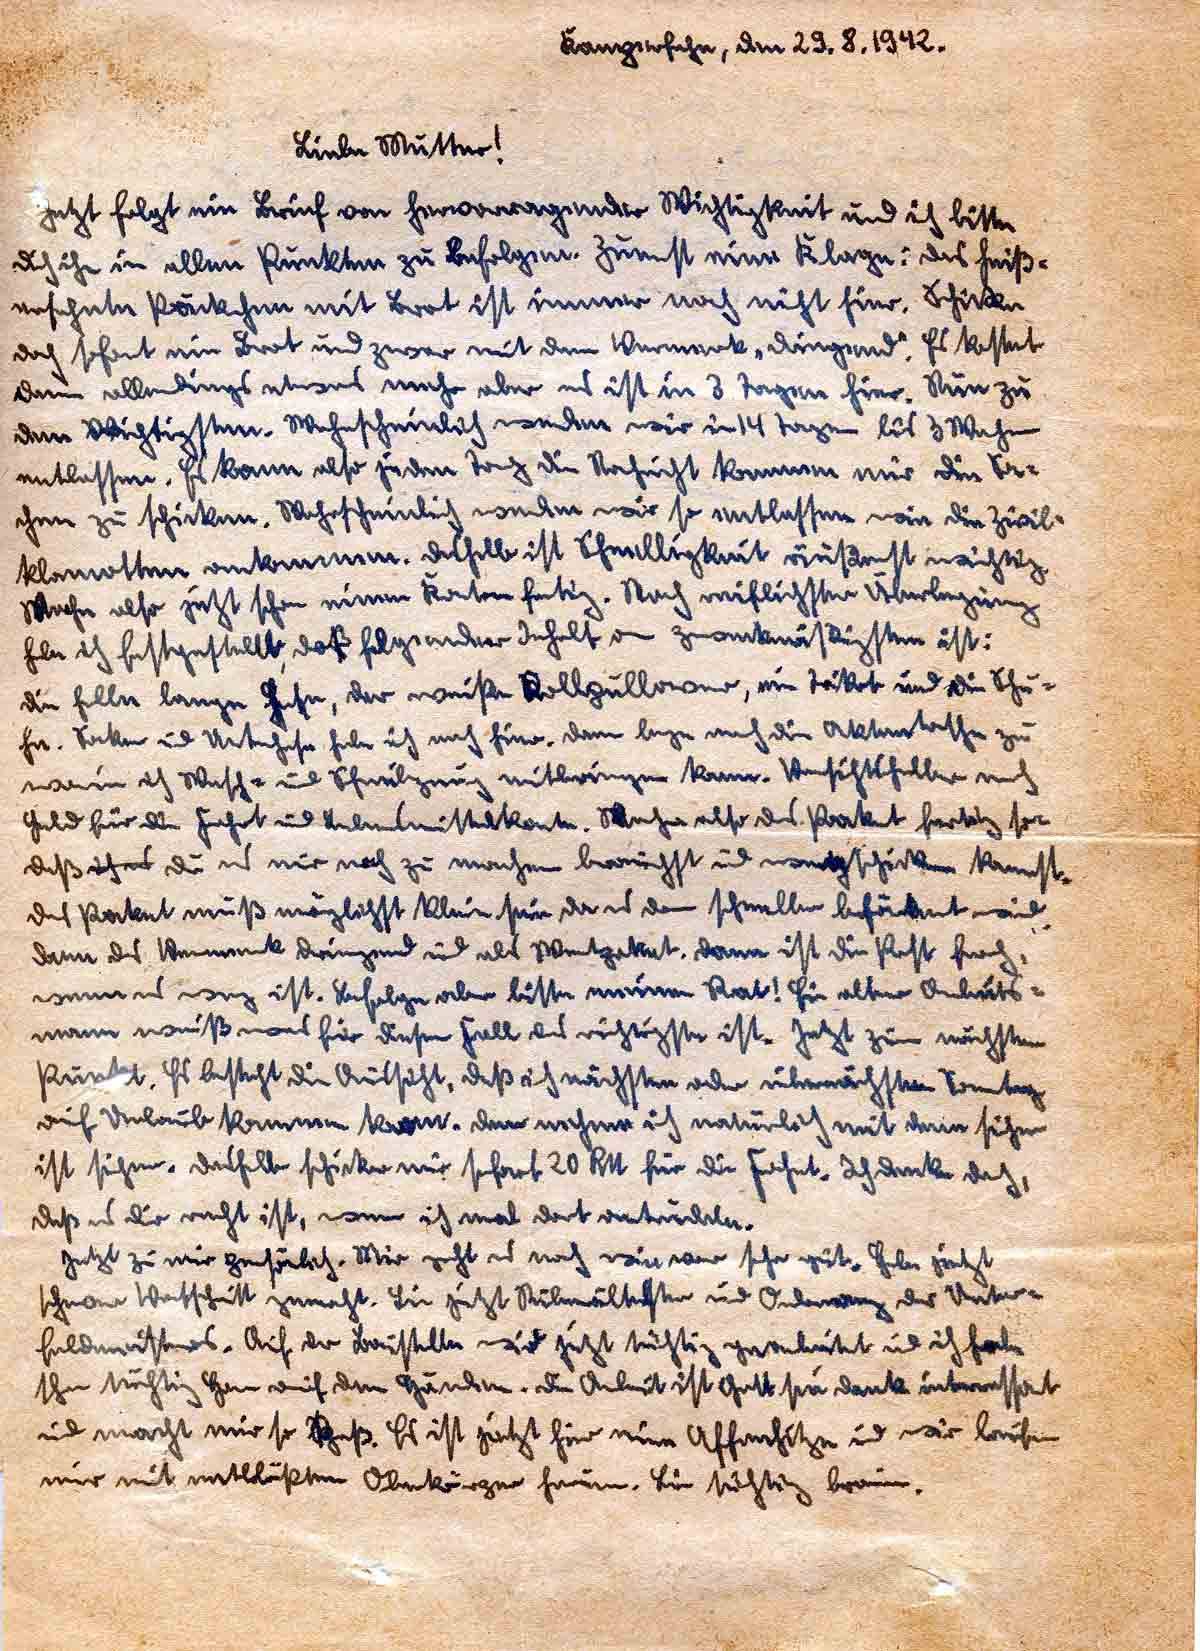 Kamperfehn, den 29.8.1942.
Liebe Mutter!
Jetzt folgt ein Brief von hervorragender Wichtigkeit und ich bitte
dich ihn in allen Punkten zu befolgen. Zuerst eine Klage: das heiß-
ersehnte Päckchen mit Brot ist immer noch nicht hier. Schicke
doch sofort ein Brot und zwar mit dem Vermerk „dringend“. Es kostet
dann allerdings etwas mehr aber es ist in 3 Tagen hier. Nun zu
dem Wichtigsten. Wahrscheinlich werden wir in 14 Tagen bis 3 Wochen
entlassen. Es kann also jeden Tag die Nachricht kommen mir die Sa-
chen zu schicken. Wahrscheinlich werden wir so entlassen wie die Zivil-
klamotten ankommen. Deshalb ist Schnelligkeit äußerst wichtig.
Mache also jetzt schon einen Karton fertig. Nach reiflichster Überlegung
habe ich festgestellt, daß folgender Inhalt am zweckmäßigsten ist:
die helle lange Hose, der weiße Rollpullover, ein Trikot und die Schu-
he. Socken und Unterhose habe ich noch hier. Dann lege noch die Aktentasche zu
worin ich Wasch- und Schreibzeug mitbringen kann. Vorsichtshalber noch
Geld für die Fahrt und Lebensmittelkarte. Mache also das Paket fertig so-
daß du es nur noch zu machen brauchst und wegschicken kannst.
Das Paket muß möglichst klein sein da es dann schneller befördert wird
dann der Vermerk dringend und als Wertpaket. Dann ist die Post froh,
wenn es weg ist. Befolge aber bitte meinen Rat! Ein alter Arbeits-
mann weiß was für diesen Fall das richtigste ist. Jetzt zum nächsten
Punkt. Es besteht die Aussicht, daß ich nächsten oder übernächsten Sonntag
auf Urlaub kommen kann. Dann rechne ich natürlich mit denn sicher
ist sicher. Deshalb schicke mir sofort 20 RM für die Fahrt. Ich denke doch,
daß es dir recht ist, wenn ich mal dort antrudele.
Jetzt zu mir persönlich. Mir geht es nach wie vor sehr gut. Habe jetzt
schwer Fortschritt gemacht. Bin jetzt Stubenältester und Ordonnanz des Unter-
feldmeisters. Auf der Baustelle wird jetzt tüchtig gearbeitet und ich habe
schon tüchtig Horn auf den Händen. Die Arbeit ist Gott sei dank interessant
und macht mir so Spaß. Es ist jetzt hier eine Affenhitze und wir laufen
nur mit entblößtem Oberkörper herum. Bin tüchtig braun.